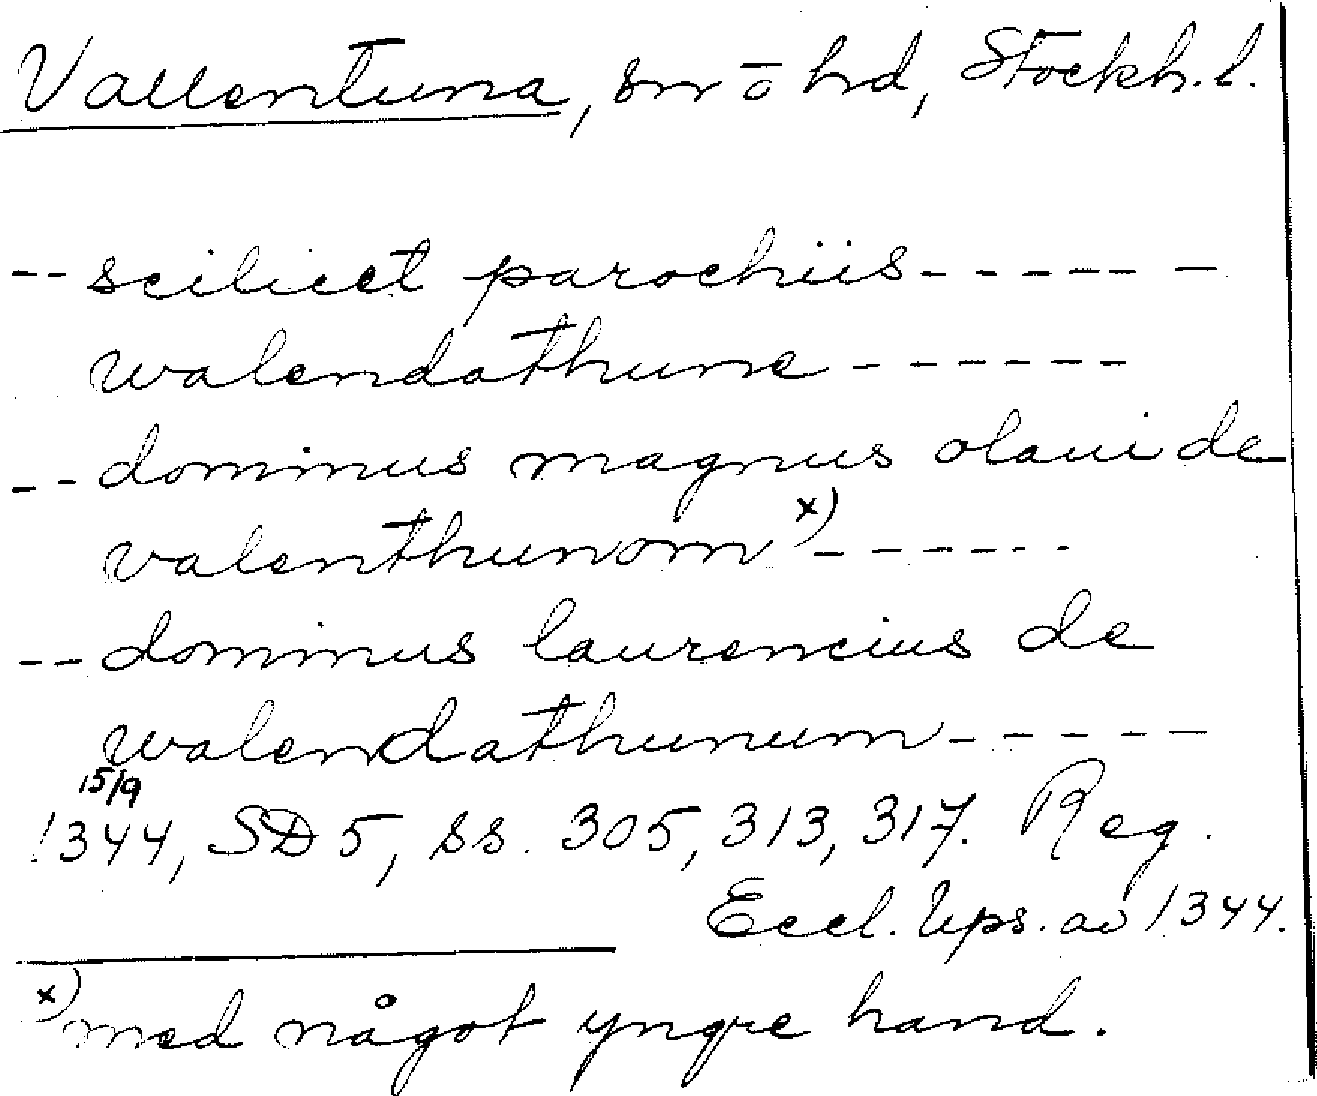 Vallentuna, sn o hd, Stockh. l.
-- scilicet parochiis - - - - - - -
walendathune - - - - - -
-- dominus magnus olaui de
valenthunom x) - - - - - -
-- dominus laurencius de
walendathunum - - - - -
15/9
1344, SD 5, ss. 305, 313, 317. Reg.
Eccl. Ups. av 1344.
x) med något yngre hand.